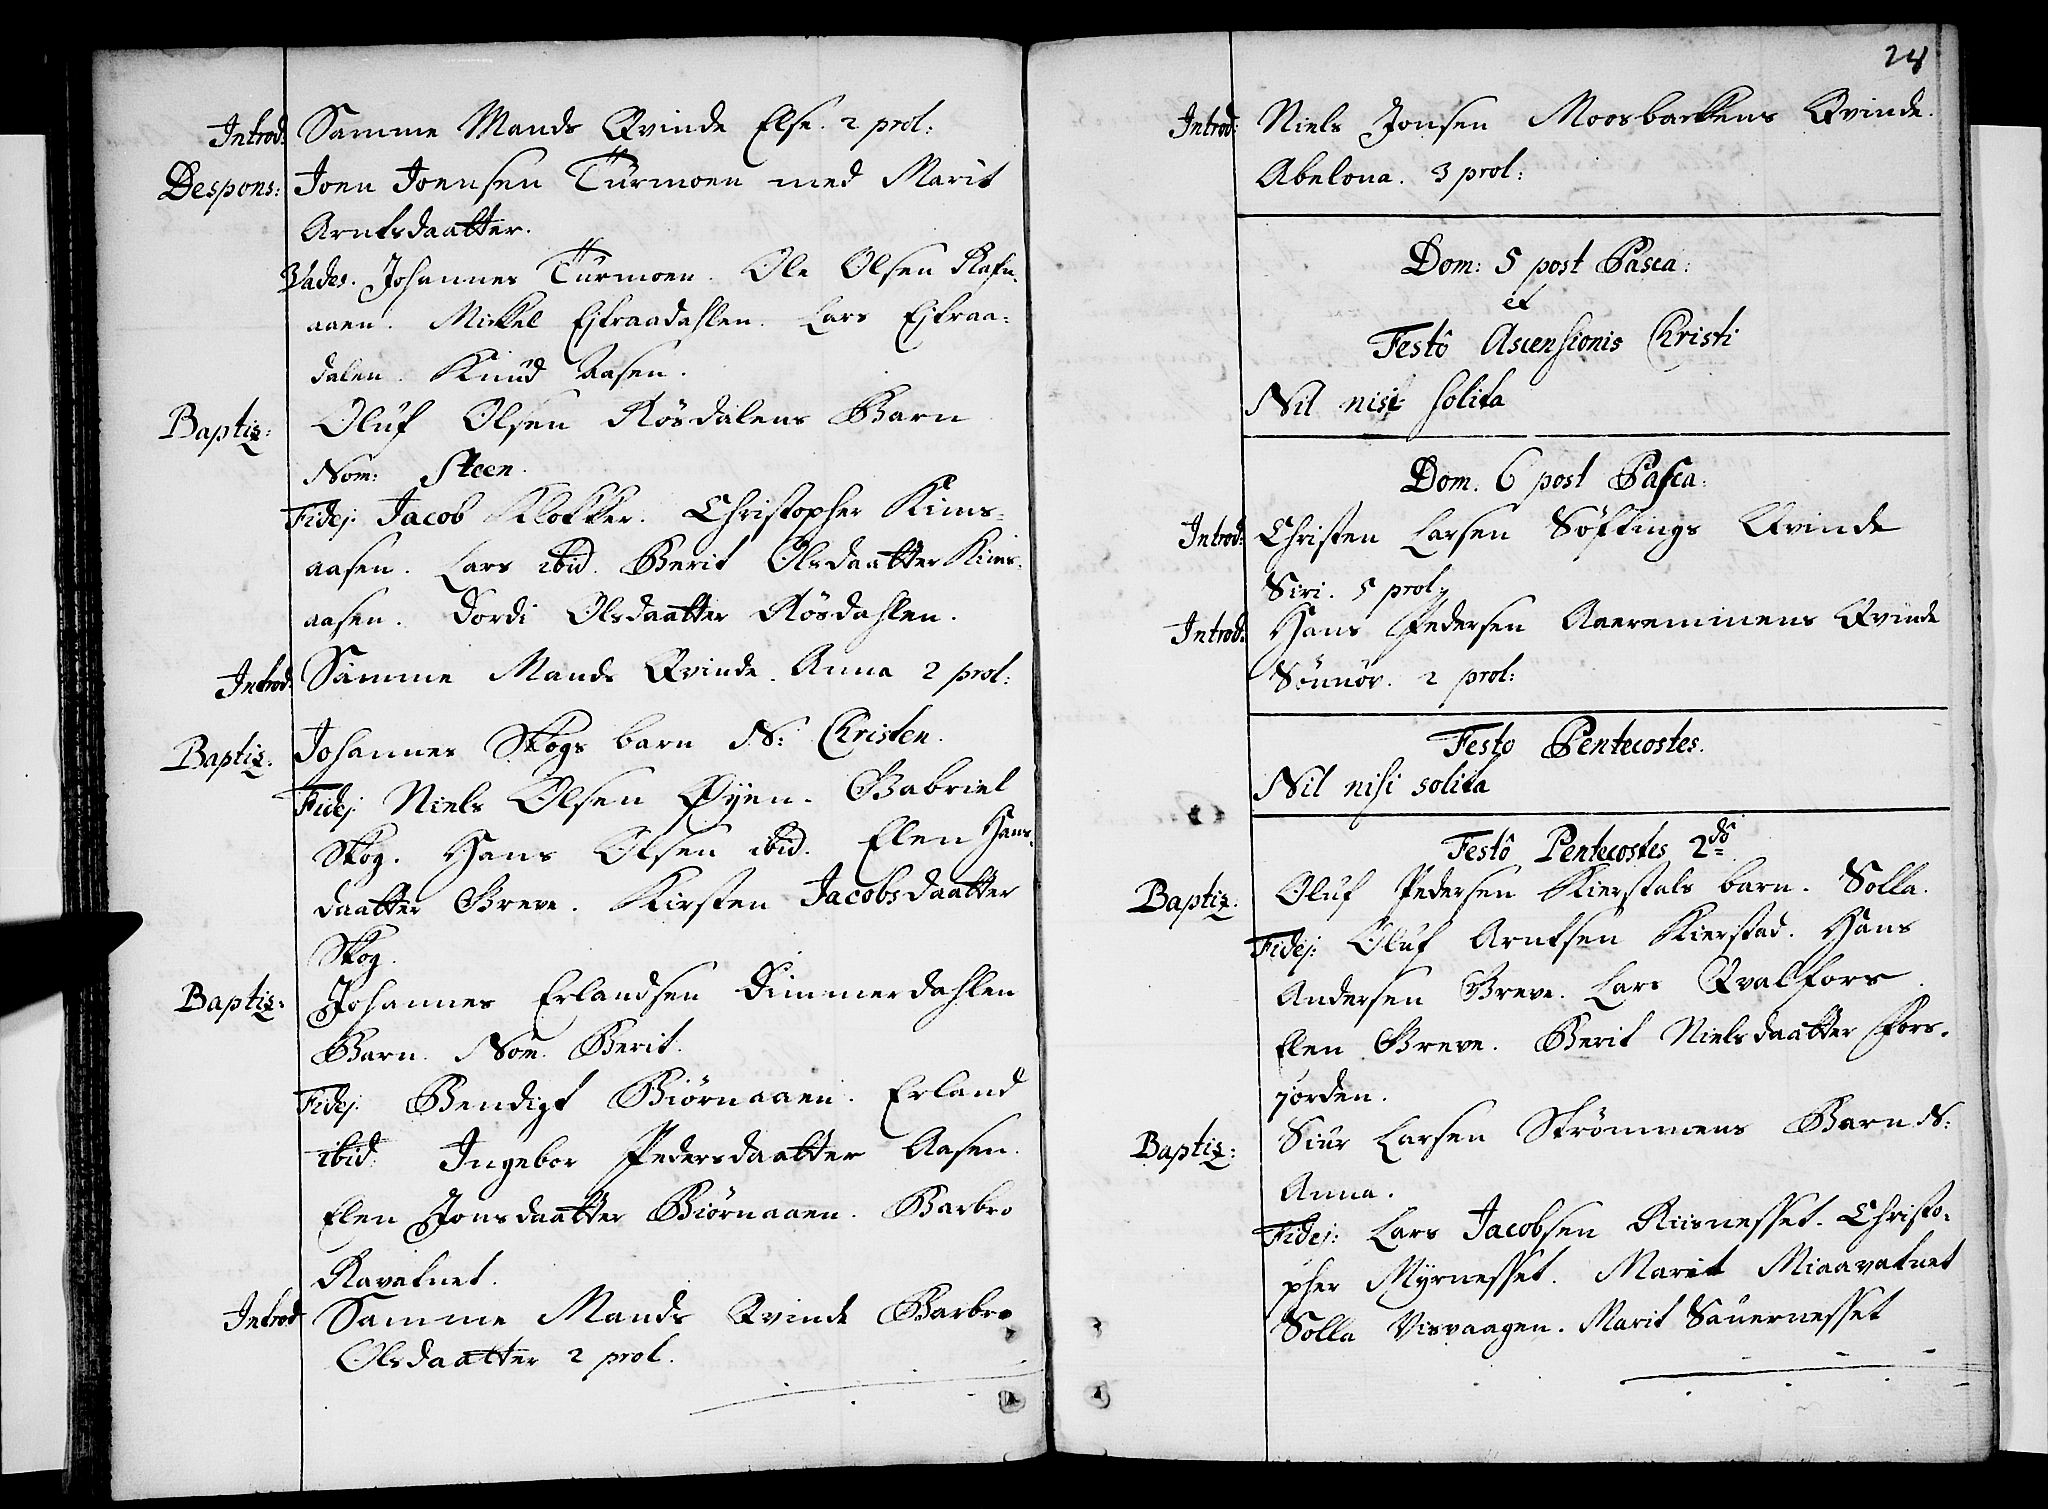 Introd: Samme Mands Qvinde Else. 2 prol:
Despons: Joen Joensen Turmoen med Marit
Arntsdaatter.
Vades. Johannes Turmoen. Ole Olsen Rafn-
aaen. Mikkel Ejtraadahlen. Lars Ejtraa-
dalen. Knud Aasen.
Baptiz: Oluf Olsen Rösdalens Barn
Nom: Steen.
Fidej: Jacob Klokker. Christopher Kims-
aasen. Lars ibid. Berit Olsdaatter Kims-
aasen. Dordi Olsdaatter Rösdahlen.
Introd: Samme Mands Qvinde. Anna 2 prol:
Baptiz: Johannes Skogs barn N: Christen.
Fidej Niels Olsen Øyen. Gabriel
Skog. Hans Olsen ibid. Elen Hans-
daatter Greve. Kirsten Jacobsdaatter
Skog.
Baptiz: Johannes Erlandsen Dimmerdahlen
Barn. Nom. Berit.
Fidej: Bendigt Biörnaaen. Erland
ibid: Ingebor Pedersdaatter Aasen.
Elen Jonsdaatter Biörnaaen. Barbro
Ravatnet.
Introd Samme Mands Qvinde Barbro
Olsdaatter 2 prol.
24
Introd: Niels Jonsen Moosbakkens Qvinde.
Abelona. 3 prol:
Dom: 5 post Pasca:
et
Festô Ascensionis Christi
Nil nisi solita
Dom. 6 post Pasca:
Introd: Christen Larsen Söftings Qvinde
Siri. 5 prol:
Introd: Hans Pedersen Aaeremmens Qvinde
Sönnöv. 2 prol:
Festo Pentecostes.
Nil nisi solita
Festô Pentecostes 2dô
Baptiz: Oluf Pedersen Kierstads barn. Solla.
Fidej: Oluf Arntsen Kierstad. Hans
Andersen Greve. Lars Qvalfors.
Elen Greve. Berit Nielsdaatter Fors-
jorden.
Baptiz: Siur Larsen Strömmens Barn N:
Anna.
Fidej: Lars Jacobsen Riisnesset. Christo-
pher Myrnesset. Marit Miaavatnet
Solla Visvaagen. Marit Sauernesset